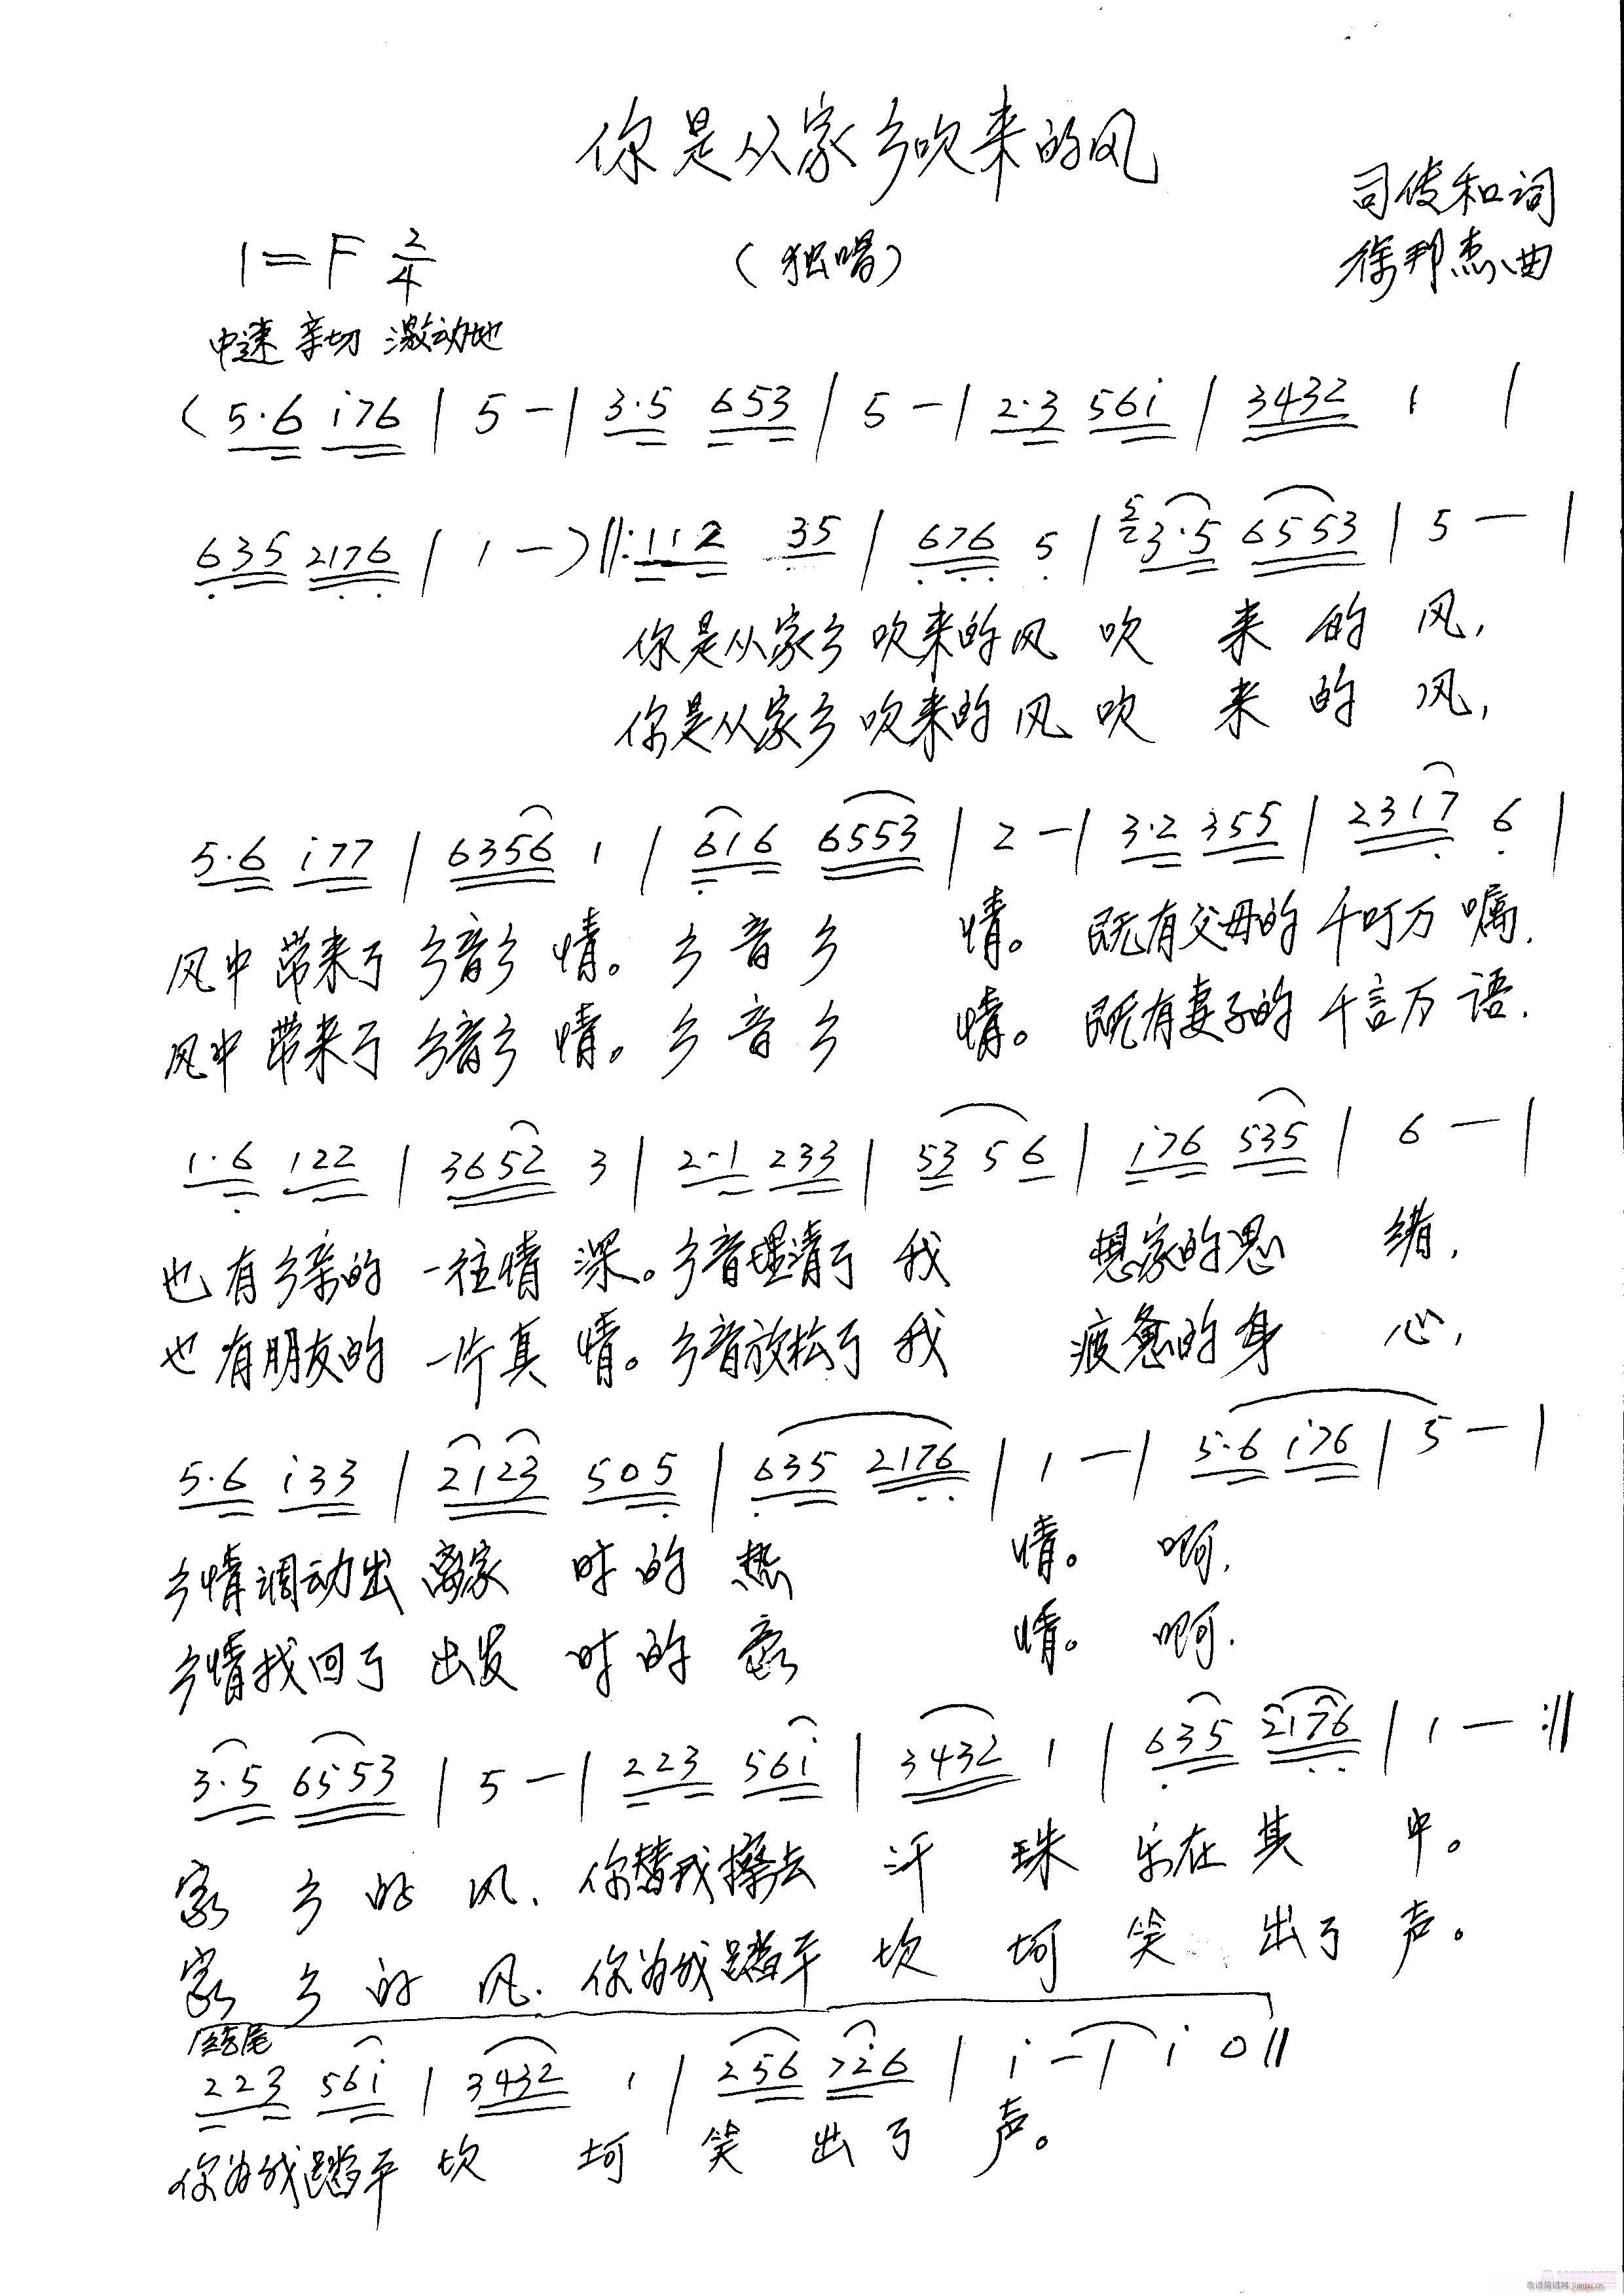 你是从家乡吹来的风
司传和词
1=F 2/4
(独唱)
徐邦杰曲
中速 亲切 激动地
(5·6 i76 | 5 - | 3·5 653 | 5 - | 2·3 56i | 3432 1 |
635 2176 | 1 - )‖: 112 35 | 676 5 | 3·5 6553 | 5 - |
你是从家乡吹来的风吹来的风,
你是从家乡吹来的风吹来的风,
5·6 i77 | 6356 1 | 616 6553 | 2 - | 3·2 355 | 2317 6 |
风中带来了乡音乡情。乡音乡情。既有父母的千叮万嘱.
风中带来了乡音乡情。乡音乡情。既有妻子的千言万语.
1·6 122 | 3652 3 | 2·1 233 | 53 5 6 | i76 535 | 6 - |
也有乡亲的一往情深。乡音理清了我想家的思绪,
也有朋友的一片真情。乡音放松了我疲惫的身心,
5·6 i33 | 2123 505 | 635 2176 | 1 - | 5·6 i76 | 5 - |
乡情调动出离家时的热情。啊.
乡情找回了出发时的豪情。啊.
3·5 6553 | 5 - | 223 56i | 3432 1 | 635 2176 | 1 - :‖
家乡的风.你替我擦去汗珠乐在其中。
家乡的风.你为我踏平坎坷笑出了声。
结尾
223 56i | 3432 1 | 256 726 | i - | i 0 ‖
你为我踏平坎坷笑出了声。
歌谱简谱网 jianpu.cn